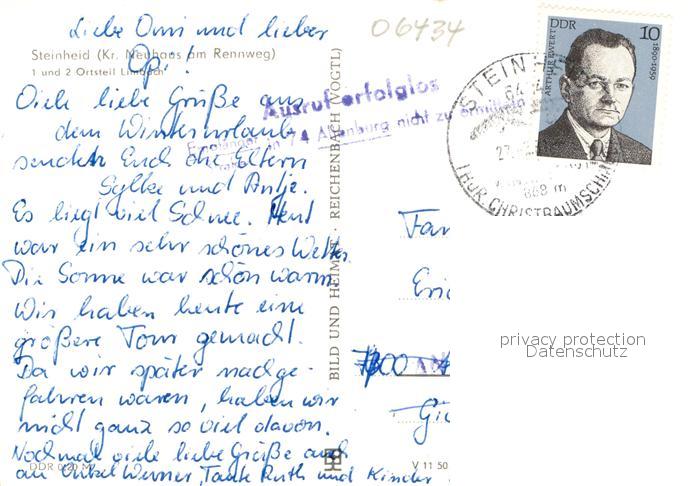 Liebe Omi und lieber
Opi!
06434
Steinheid (Kr. Neuhaus am Rennweg)
1 und 2 Ortsteil Limbach
Viele liebe Grüße aus
dem Winterurlaub
senden Euch die Eltern
Sylke und Antje.
Es liegt viel Schnee. Heut
war ein sehr schönes Wetter.
Die Sonne war schön warm.
Wir haben heute eine
größere Tour gemacht.
Da wir später nachge-
fahren waren, haben wir
nicht ganz so viel davon.
Nochmal viele liebe Grüße auch
an Onkel Werner, Tante Ruth und Kinder
DDR 0,20 M
V 11 50
BILD UND HEIMAT REICHENBACH (VOGTL)
Ausruf erfolglos
Empfänger in 74 Altenburg nicht zu ermitteln
DDR
10
ARTHUR EWERT
1890-1959
STEINH
64
27.
868 m
THÜR. CHRISTBAUMSCHM
Fam
Eri
Gi
privacy protection
Datenschutz